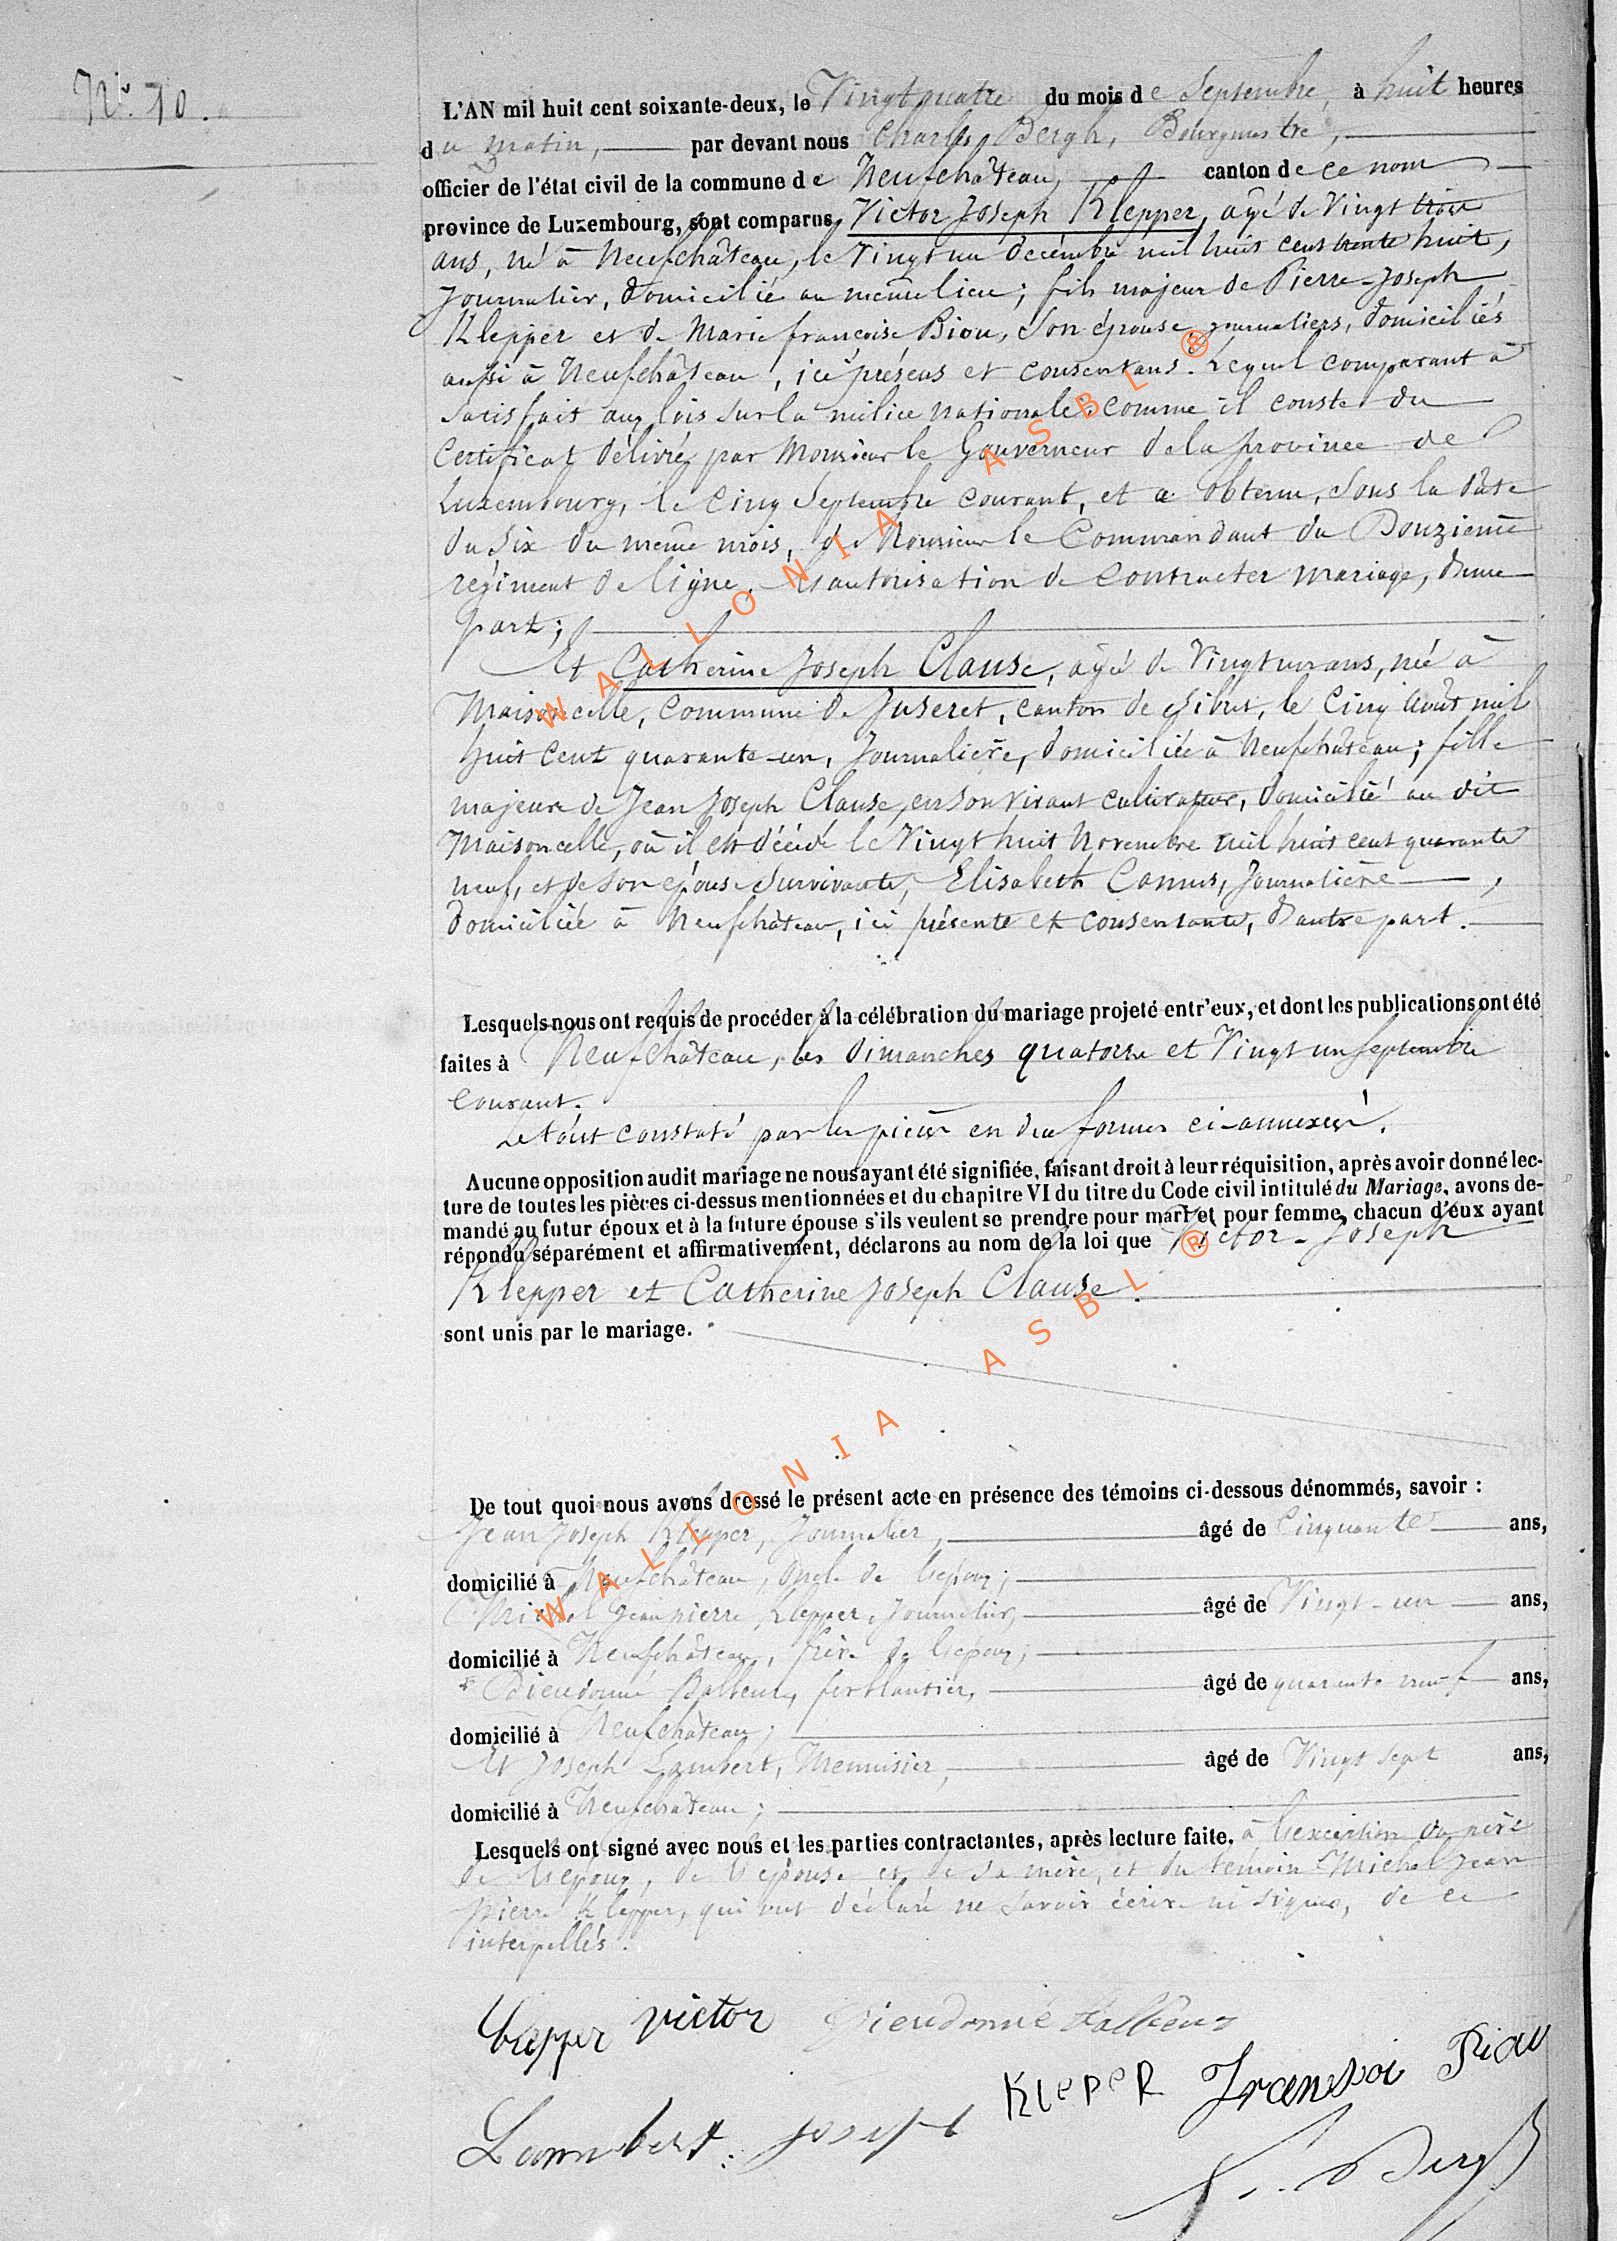 N° 10.
L'AN mil huit cent soixante-deux, le Vingt quatre du mois de Septembre, à huit heures
du matin, par devant nous Charles Bergh, Bourgmestre,
officier de l'état civil de la commune de Neufchâteau, canton de ce nom
province de Luxembourg, sont comparus Victor Joseph Klepper, âgé de Vingt trois
ans, né à Neufchâteau, le Vingt un Décembre mil huit cent trente huit,
Journalier, domicilié au même lieu; fils majeur de Pierre-Joseph
Klepper et de Marie françoise Biou, son épouse, journaliers, domiciliés
aussi à Neufchâteau, ici présens et consentans. Lequel comparant à
satisfait aux lois sur la milice nationale, comme il conste du
Certificat délivré par Monsieur le Gouverneur de la province de
Luxembourg, le Cinq Septembre courant, et a obtenu, sous la date
du Six du même mois, de Monsieur le Commandant du Douzième
régiment de ligne, l'autorisation de contracter mariage, d'une
part;
Et Catherine Joseph Clause, âgée de Vingt un ans, née à
Maisoncelle, Commune de Juseret, canton de Sibret, le Cinq Août mil
huit Cent quarante-un, Journalière, domiciliée à Neufchâteau; fille
majeure de Jean Joseph Clause, en son vivant cultivateur, domicilié au dit
Maisoncelle, où il est décédé le Vingt huit Novembre mil huit cent quarante
neuf, et de son épouse survivante, Elisabeth Camus, Journalière,
domiciliée à Neufchâteau, ici présente et consentante, d'autre part.
Lesquels nous ont requis de procéder à la célébration du mariage projeté entr'eux, et dont les publications ont été
faites à Neufchâteau, les dimanches quatorze et Vingt un septembre
Courant.
Le tout constaté par les pièces en due formes ci-annexées.
Aucune opposition audit mariage ne nous ayant été signifiée, faisant droit à leur réquisition, après avoir donné lec-
ture de toutes les pièces ci-dessus mentionnées et du chapitre VI du titre du Code civil intitulé du Mariage, avons de-
mandé au futur époux et à la future épouse s'ils veulent se prendre pour mari et pour femme, chacun d'eux ayant
répondu séparément et affirmativement, déclarons au nom de la loi que Victor-Joseph
Klepper et Catherine Joseph Clause.
sont unis par le mariage.
De tout quoi nous avons dressé le présent acte en présence des témoins ci-dessous dénommés, savoir :
Jean Joseph Klepper, Journalier, âgé de Cinquante ans,
domicilié à Neufchâteau, Oncle de l'époux;
Michel Jean pierre Klepper, Journalier, âgé de Vingt-un ans,
domicilié à Neufchâteau, frère de l'époux;
Dieudonné Balbeur, ferblantier, âgé de quarante neuf ans,
domicilié à Neufchâteau;
Et Joseph Lambert, Menuisier, âgé de Vingt sept ans,
domicilié à Neufchâteau;
Lesquels ont signé avec nous et les parties contractantes, après lecture faite, à l'exception du père
de l'époux, de l'épouse et de sa mère, et du témoin Michel Jean
pierre Klepper, qui ont déclaré ne savoir écrire ni signer, de ce
interpellés.
Klepper victor Dieudonné Balbeur
KLePeR Fransoi Biau
Lambert Joseph
C. Bergh
WALLONIA ASBL ®
WALLONIA ASBL ®